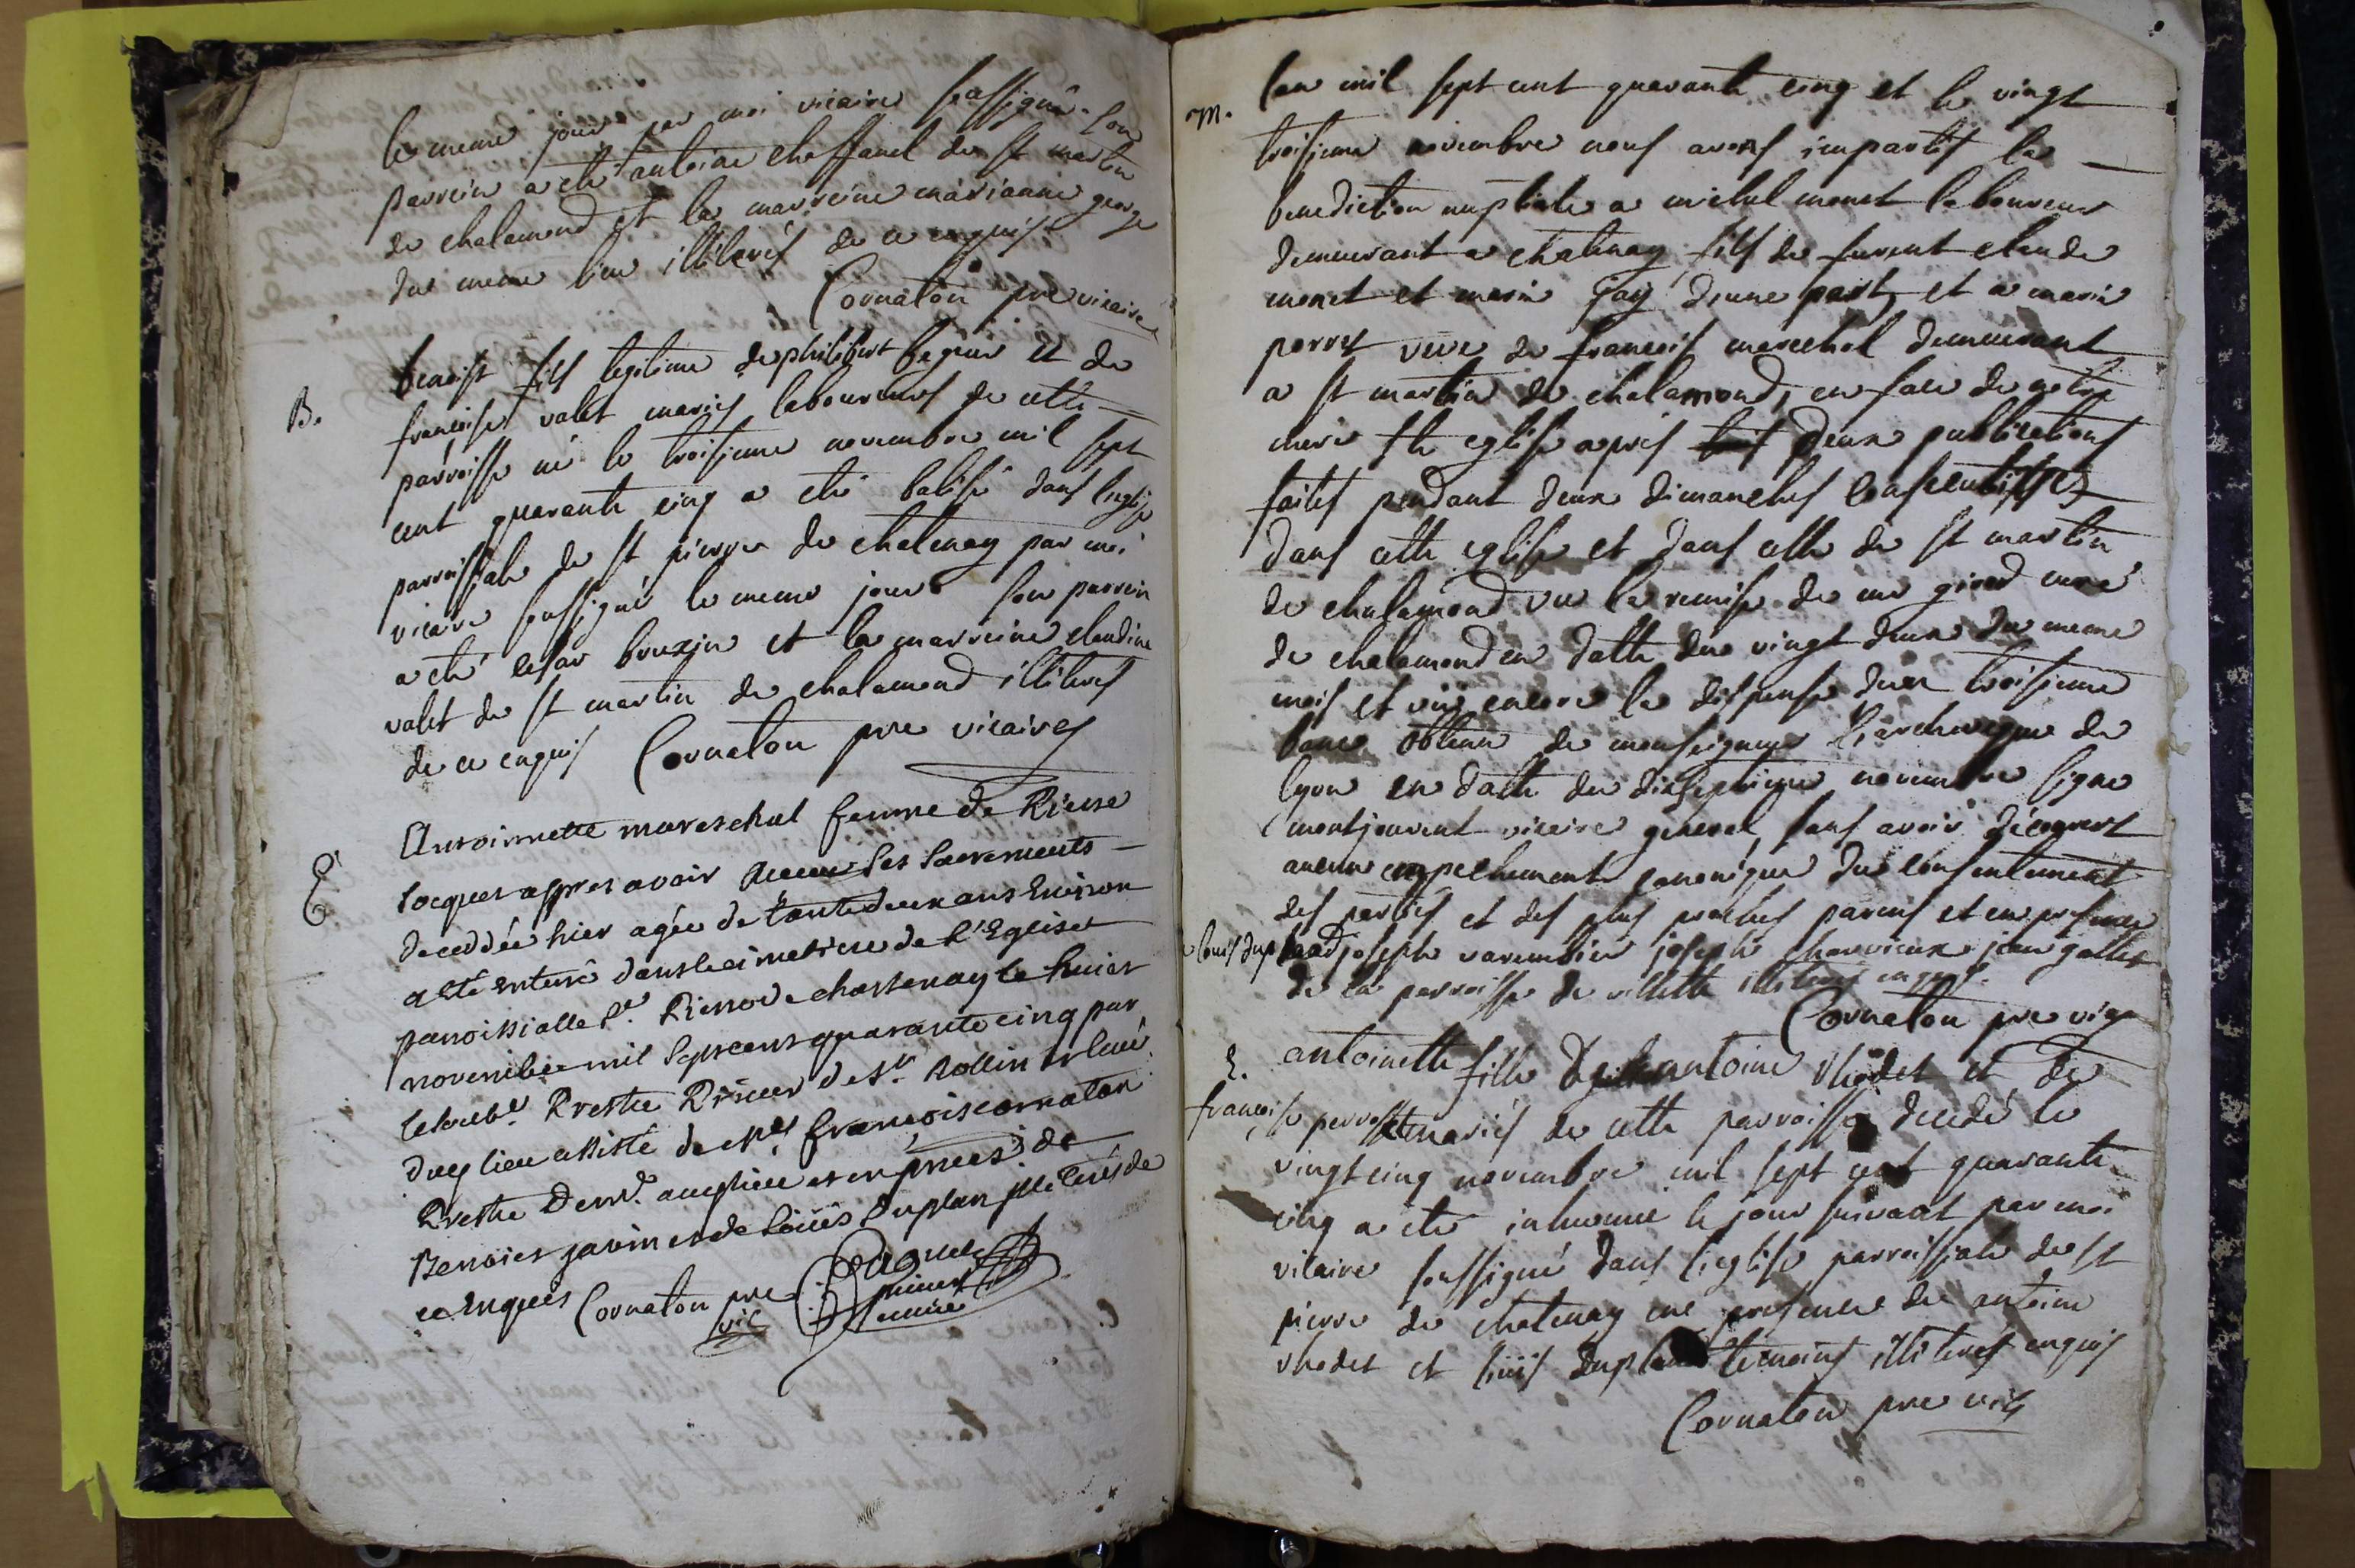 le meme jour par moi vicaire soussigné. son
parrein a eté antoine chaffanel de st martin
de chalamond et la marreine marianne george
du meme lieu illiterés de ce enquis
Cornaton pre vicaire
B.
benoist fils legitime de philibert beguet et de
françoise valet mariés laboureurs de cette
parroisse né le troisieme novembre mil sept
cent quarante cinq a eté batisé dans l'eglise
parroissiale de st pierre de chatenay par moi
vicaire soussigné le meme jour son parrein
a eté cesar bruxin et la marreine claudine
valet de st martin de chalamond illiterés
de ce enquis Cornaton pre vicaire
E
Antoinette mareschal femme de Pierre
Jacquet appres avoir receue ses sacrements
decedée hier agée de tantedeux ans Environ
a été enterré dans le cimetiere de l'Eglise
paroissialle st. Pierre de chastenay le huict
novembre mil sept cent quarante cinq par
Prestre Prieur de st. et curé
dud lieu assisté de François cornaton
Prestre aud lieu et en presence de
Benoict janin et de Loüis Duplan illiterés de
ce Enquis Cornaton pre vic
prieur
curé
m.
L'an mil sept cent quarante cinq et le vingt
troisieme novembre nous avons imparti la
benediction nuptiale a michel monet laboureur
demeurant a chatenay fils de furent claude
monet et marie gay d'une part, et a marie
perret veve de françois marechal demeurant
a st martin de chalamond, en face de notre
mere ste eglise apres deux publications
faites pendant deux dimanches consecutifs
dans cette eglise et dans celle de st martin
de chalamond vu la remise de mr girod curé
de chalamond en datte du vingt deux du meme
mois et vüe encore la dispense du troisieme
banc obtenu de monseigneur l'archeveque de
lyon en datte du dixseptieme novembre signe
montjouvent vicaire general, sans avoir découvert
aucun empechement canonique du consentement
des parties et des plus proches parens et en presence
de louis duplan joseph varembier joseph chanvieux jean gallet
de la parroisse de villette illiterés enquis.
Cornaton pre vicr
E.
antoinette fille de antoine rhodet et de
françoise perret mariés de cette parroisse decedé le
vingt cinq novembre mil sept cent quarante
cinq a eté inhumé le jour suivant par moi
vicaire soussigné dans l'eglise parroissiale de st
pierre de chatenay en presence de antoine
rhodet et loüis duplan temoins illiterés enquis
Cornaton pre vic